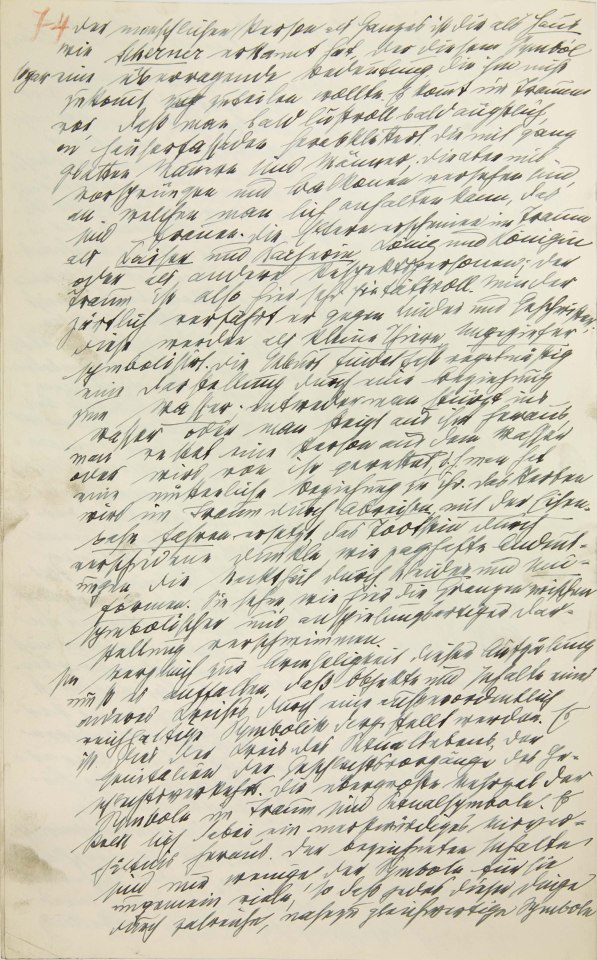 7-4 der menschlichen Person als Ganzes ist die als Haus
wie Scherner erkannt hat, der diesem Symbol
sogar eine überragende Bedeutung, die ihm nicht
zukomt, zuerteilen wollte. Es komt im Traume
vor, daß man bald lustvoll bald ängstlich
an Häuserfassaden herabklettert. Die mit ganz
glatten Mauern sind Männer, die aber mit
Vorsprüngen und Balkonen versehen sind,
an welchen man sich anhalten kann, das
sind Frauen. Die Eltern erscheinen im Traum
als Kaiser und Kaiserin, König und Königin
oder als andere Respektspersonen; der
Traum ist also hier sehr pietätvoll. Minder
zärtlich verfährt er gegen Kinder und Geschwister;
diese werden als kleine Thiere, Ungeziefer
symbolisirt. Die Geburt findet fast regelmäßig
eine Darstellung durch eine Beziehung
zum Wasser; entweder man stürzt ins
Wasser oder man steigt aus ihm heraus,
man rettet eine Person aus dem Wasser
oder wird von ihr gerettet d.h. man hat
eine mütterliche Beziehung zu ihr. Das Sterben
wird im Traum durch Abreisen, mit der Eisen-
bahn fahren ersetzt, das Todtsein durch
verschiedene dunkle, wie zaghafte Andeut-
ungen, die Nacktheit durch Kleider und Uni-
formen. Sie sehen wie hier die Grenzen zwischen
symbolischer und anspielungsartiger Dar-
stellung verschwimmen.
Im Vergleich zur Armseligkeit dieser Aufzählung
muß es auffallen, daß Objekte und Inhalte eines
anderen Kreises durch eine außerordentlich
reichhaltige Symbolik dargestellt werden. Es
ist dies der Kreis des Sexuallebens, der
Genitalien, der Geschlechtsvorgänge, des Ge-
schlechtsverkehrs. Die übergroße Mehrzal der
Symbole im Traum sind Sexualsymbole. Es
stellt sich dabei ein merkwürdiges Misver-
hältnis heraus. Der bezeichneten Inhalte
sind nur wenige, der Symbole für sie
ungemein viele, so daß jedes dieser Dinge
durch zalreiche, nahezu gleichwertige Symbole